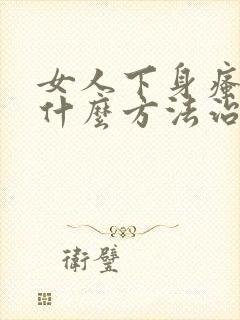 女人下身瘙
什麼方法治
衛璧